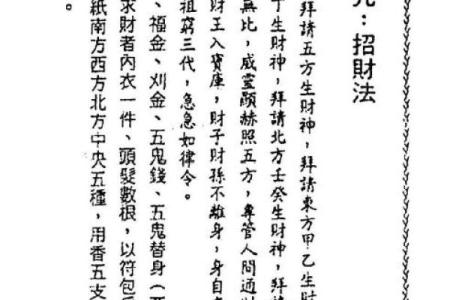 ：招財法
拜請五方生財神，拜請東方甲乙生財
丁生財神，拜請北方壬癸生財神，拜
無比，威靈顯赫照五方，專管人間通財
財王入寶庫，財子財孫不離身，身自
祖窮三代，急急如律令。
、福金、刈金、五鬼錢、五鬼替身（
求財者內衣一件、頭髮數根，以符包
紙南方西方北方中央五種，用香五支
。